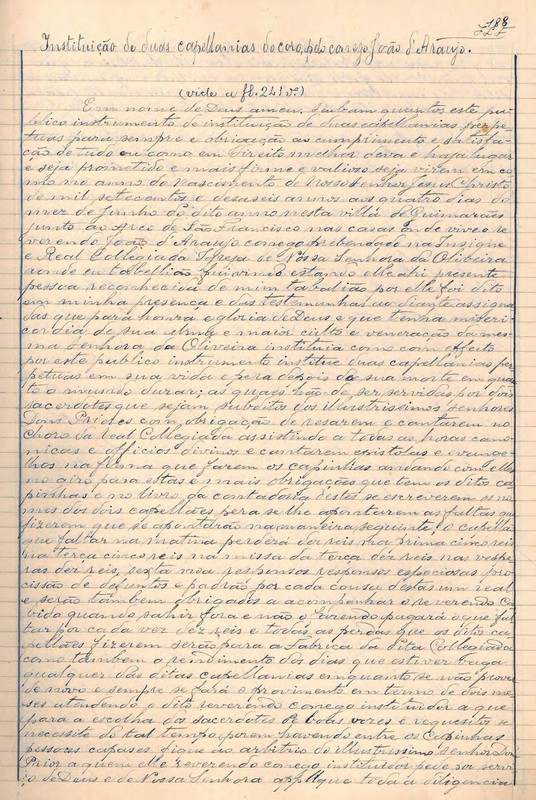 188
Instituição de duas capellanias do coro, pelo conego João d'Araujo.
(vide a fl. 241 vº)
Em nome de Deus amen. Saibam quantos este pu-
blico instrumento de instituição de duas capellanias perpe-
tuas para sempre e obrigação ao cumprimento e satisfa-
ção de tudo ou como em direito melhor deva e haja lugar
e seja promettido e mais firme e valioso seja virem em co-
mo no anno do Nascimento de Nosso Senhor Jesus Christo
de mil setecentos e desaseis annos aos quatro dias do
mez de Junho do dito anno nesta villa de Guimarães
junto ao Arco de São Francisco nas casas onde vive o re-
verendo João d'Araujo conego prebendado na Insigne
e Real Collegiada Igreja de Nossa Senhora da Oliveira
aonde eu tabellião fui vindo estando elle ahi presente
pessoa reconhecida de mim tabalião por elle foi dito
em minha presença e das testemunhas ao diante assigna-
das que para honra e gloria de Deus e que tenha miseri-
cordia de sua alma e maior culto e veneração da mes-
ma Senhora da Oliveira instituia como com effeito
por este publico instrumento institue duas capellanias per-
petuas em sua vida e pera depois da sua morte em quan-
to o mundo durar; as quaes hão de ser servidas por dois
sacerdotes que sejam subditos dos illustrissimos senhores
Dons Priores com obrigação de resarem e cantarem no
Choro da real Collegiada assistindo a todas as horas cano-
nicas e officios divinos e cantarem epistolas e evange-
lhos na forma que fazem os capinhas andando com elles
no giro para estas e mais obrigações que tem os ditos ca-
pinhas e no livro da contadoria destes se escreverem os no-
mes dos dois capellães pera se lhe apontarem as faltas que
fizerem que se apontarão na maneira seguinte, o capellão
que faltar na matina perderá dez reis, na prima cinco reis
na terça cinco reis na missa da terça dez reis, nas vespe-
ras dez reis, sexta noa responsos responses especiosas pro-
cissão de defuntos e padrão por cada cousa destas um real
e serão tambem obrigados a acompanhar o reverendo Ca-
bido quando sahir fora e não o fazendo pagará o que fal-
tar por cada vez dez reis e todas as perdas que os ditos ca-
pellães fizerem serão para a Fabrica da dita Collegiada
como tambem o rendimento dos dias que estiver vaga
qualquer das ditas capellanias emquanto se não prover
de novo e sempre se fará o provimento em termo de dois me-
ses atendendo o dito reverendo conego instituidor a que
para a escolha dos sacerdotes de boas vozes e requesitos se
necessite de tal tempo, porem havendo entre os Capinhas
pessoas capases fique ao arbitrio do illustrissimo senhor Dom
Prior a quem elle reverendo conego instituidor pede por servi-
ço de Deus e de Nossa Senhora applique toda a diligencia